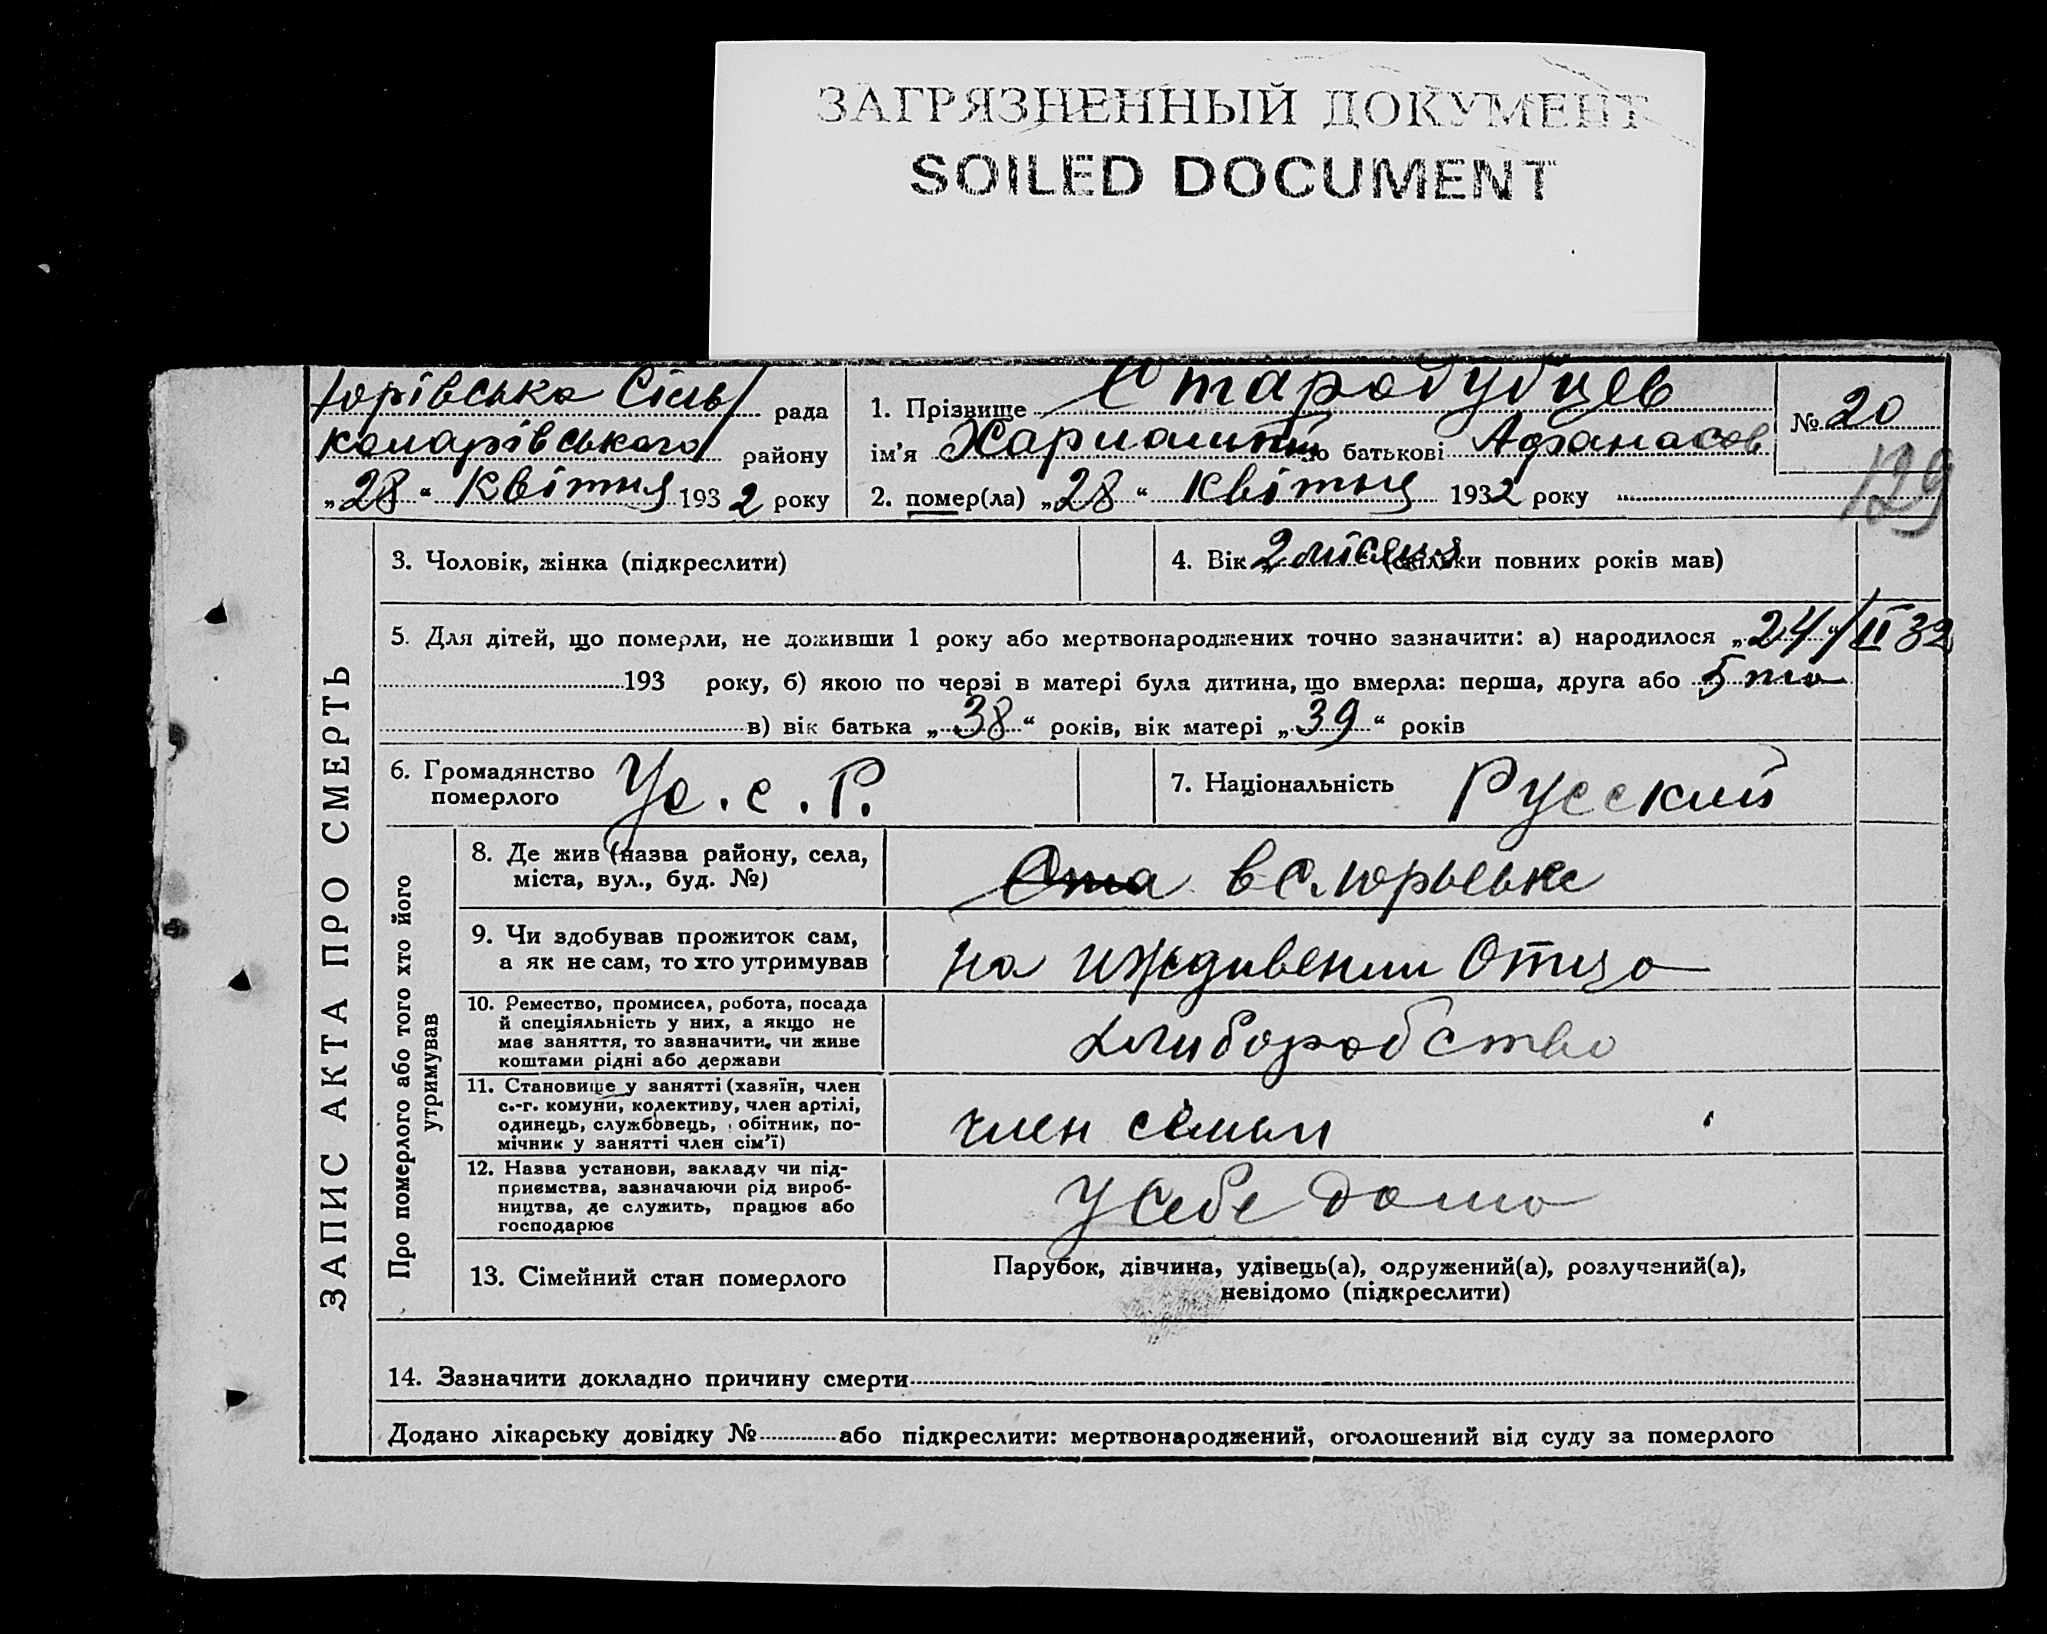 ЗАГРЯЗНЕННЫЙ ДОКУМЕНТ
SOILED DOCUMENT
Юрівська Сіль/ рада
комарівського району
„28“ Квітня 1932 року
1. Прізвище Стародубцев
ім’я Харлампій по батькові Афанасов
2. помер(ла) „28“ Квітня 1932 року
№ 20
129
ЗАПИС АКТА ПРО СМЕРТЬ
3. Чоловік, жінка (підкреслити)
4. Вік „2 місяця (скільки повних років мав)
5. Для дітей, що померли, не доживши 1 року або мертвонароджених точно зазначити: а) народилося „24“/II 32
193 року, б) якою по черзі в матері була дитина, що вмерла: перша, друга або 5 та
в) вік батька „38“ років, вік матері „39“ років
6. Громадянство
померлого
Ус.с.Р.
7. Національність Русский
Про померлого або того хто його
утримував
8. Де жив (назва району, села,
міста, вул., буд. №)
в с. юрьевке
9. Чи здобував прожиток сам,
а як не сам, то хто утримував
на иждивении Отца
10. Ремество, промисел, робота, посада
й спеціяльність у них, а якщо не
має заняття, то зазначити, чи живе
коштами рідні або держави
хлиборобство
11. Становище у занятті (хазяїн, член
с.-г. комуни, колективу, член артілі,
одинець, службовець, обітник, по-
мічник у занятті член сім’ї)
член семьи
12. Назва установи, закладу чи під-
приємства, зазначаючи рід вироб-
ництва, де служить, працює або
господарює
у себе дома
13. Сімейний стан померлого
Парубок, дівчина, удівець(а), одружений(а), розлучений(а),
невідомо (підкреслити)
14. Зазначити докладно причину смерти
Додано лікарську довідку № або підкреслити: мертвонароджений, оголошений від суду за померлого